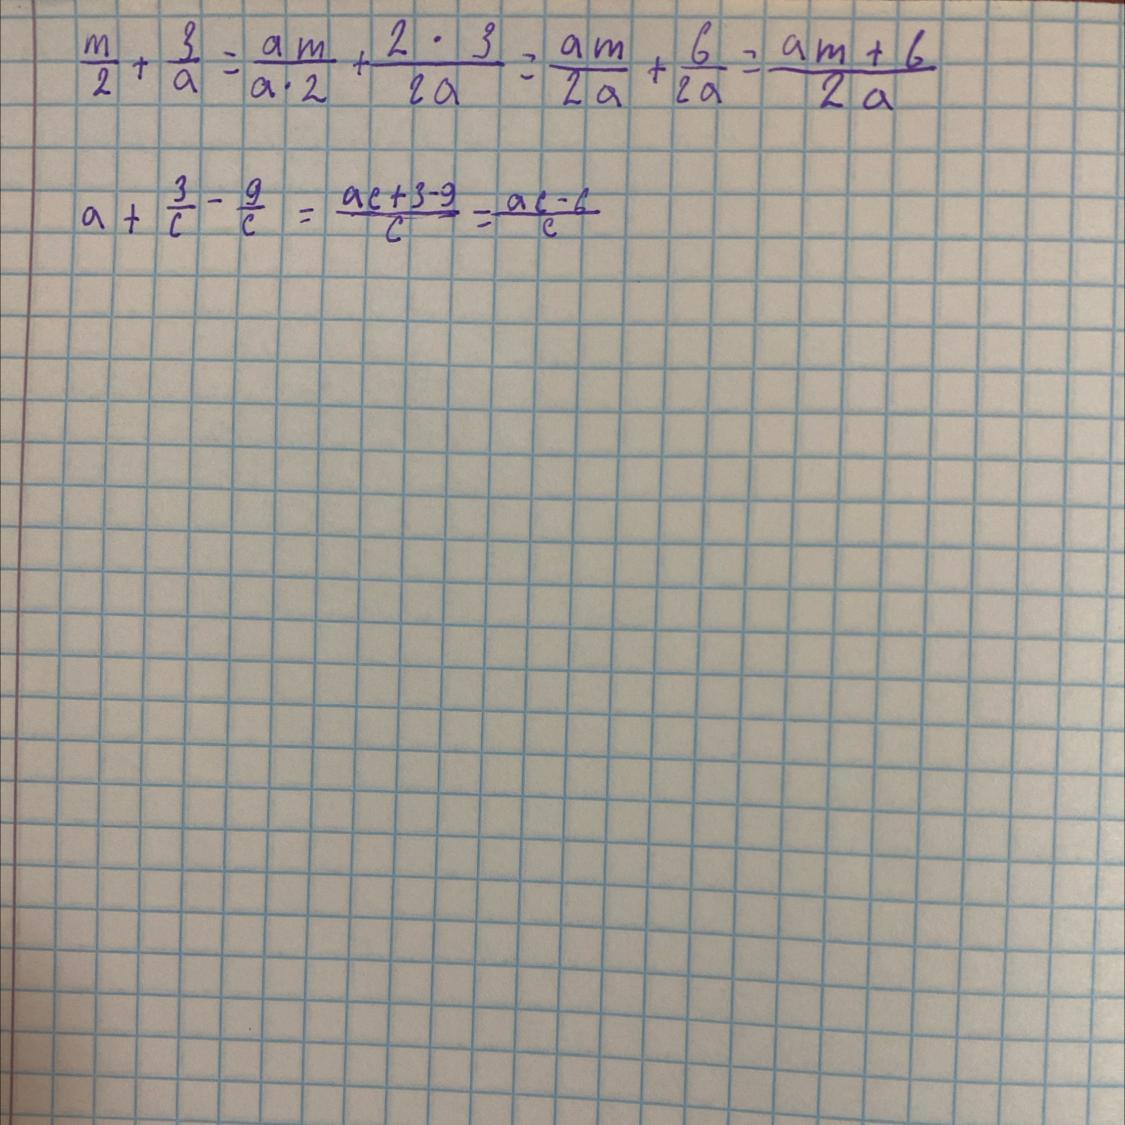 m/2 + 3/a = am/a·2 + 2·3/2a = am/2a + 6/2a = am+6/2a
a + 3/c - 9/c = ac+3-9/c = ac-6/c